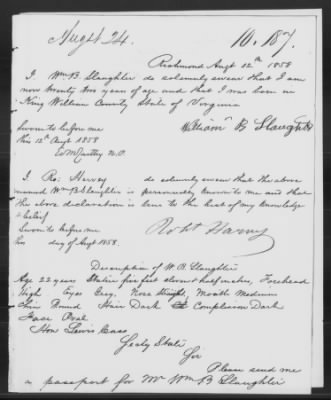 Augt 24.
10.187.
Richmond Augt 12th 1858
I Wm B. Slaughter do solemnly swear that I am
now twenty two years of age and that I was born in
King William County State of Virginia
William B Slaughter
Sworn to before me
this 12th Augt 1858
N.P.
I Ro: Harvey do solemnly swear that the above
named Wm B Slaughter is personally known to me and that
the above declaration is true to the best of my knowledge
& belief
Robt Harvey
Sworn to before me
day of Augt 1858.
Description of W. B. Slaughter
Age 22 years Stature five feet eleven & half inches, Forehead
High Eyes Grey, Nose straight, Mouth Medium
Chin Round Hair Dark Complexion Dark
Face Oval
Hon Lewis Cass
Secty State
Sir
Please send me
a passport for Mr Wm B Slaughter